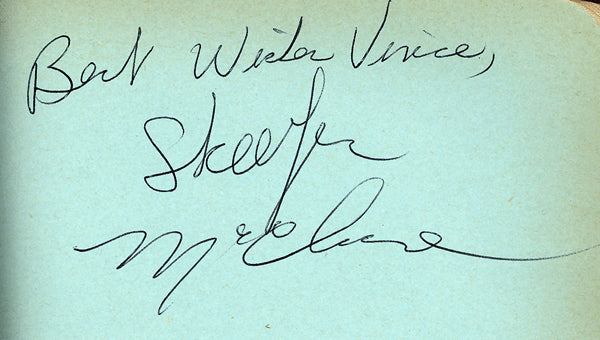 Best Wishes Vince,
Skeeter
McClure